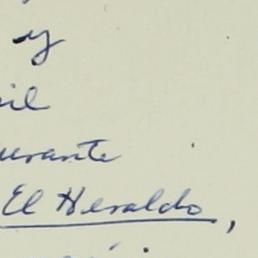 y
il
urante
El Heraldo,